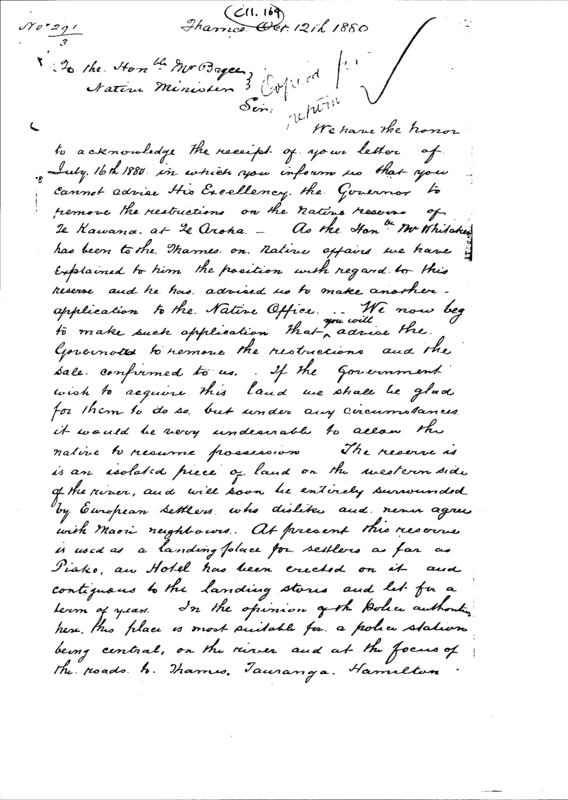 C11. 169
No 291
3
Thames Oct. 12th 1880
To the Honble Mr Bryce
Native Minister
Copied for
return
Sir,
We have the honor
to acknowledge the receipt of your letter of
July 16th 1880 in which you inform us that you
cannot advise His Excellency the Governor to
remove the restrictions on the Native reserve of
Te Kawana at Te Aroha - As the Honble Mr Whitaker
has been to the Thames on Native affairs we have
explained to him the position with regard to this
reserve and he has advised us to make another
application to the Native Office. .. We now beg
to make such application that you will advise the
Governor to remove the restrictions and the
sale confirmed to us. . If the Government
wish to acquire this land we shall be glad
for them to do so but under any circumstances
it would be very undesirable to allow the
native to resume possession The reserve is
is an isolated piece of land on the western side
of the river, and will soon be entirely surrounded
by European settlers who dislike and never agree
with Maori neighbours. At present this reserve
is used as a landing place for settlers as far as
Piako, an Hotel has been erected on it and
contiguous to the landing stores and let for a
term of years. In the opinion of the Police authorities
here, this place is most suitable for a police station
being central, on the river and at the focus of
the roads to Thames, Tauranga, Hamilton